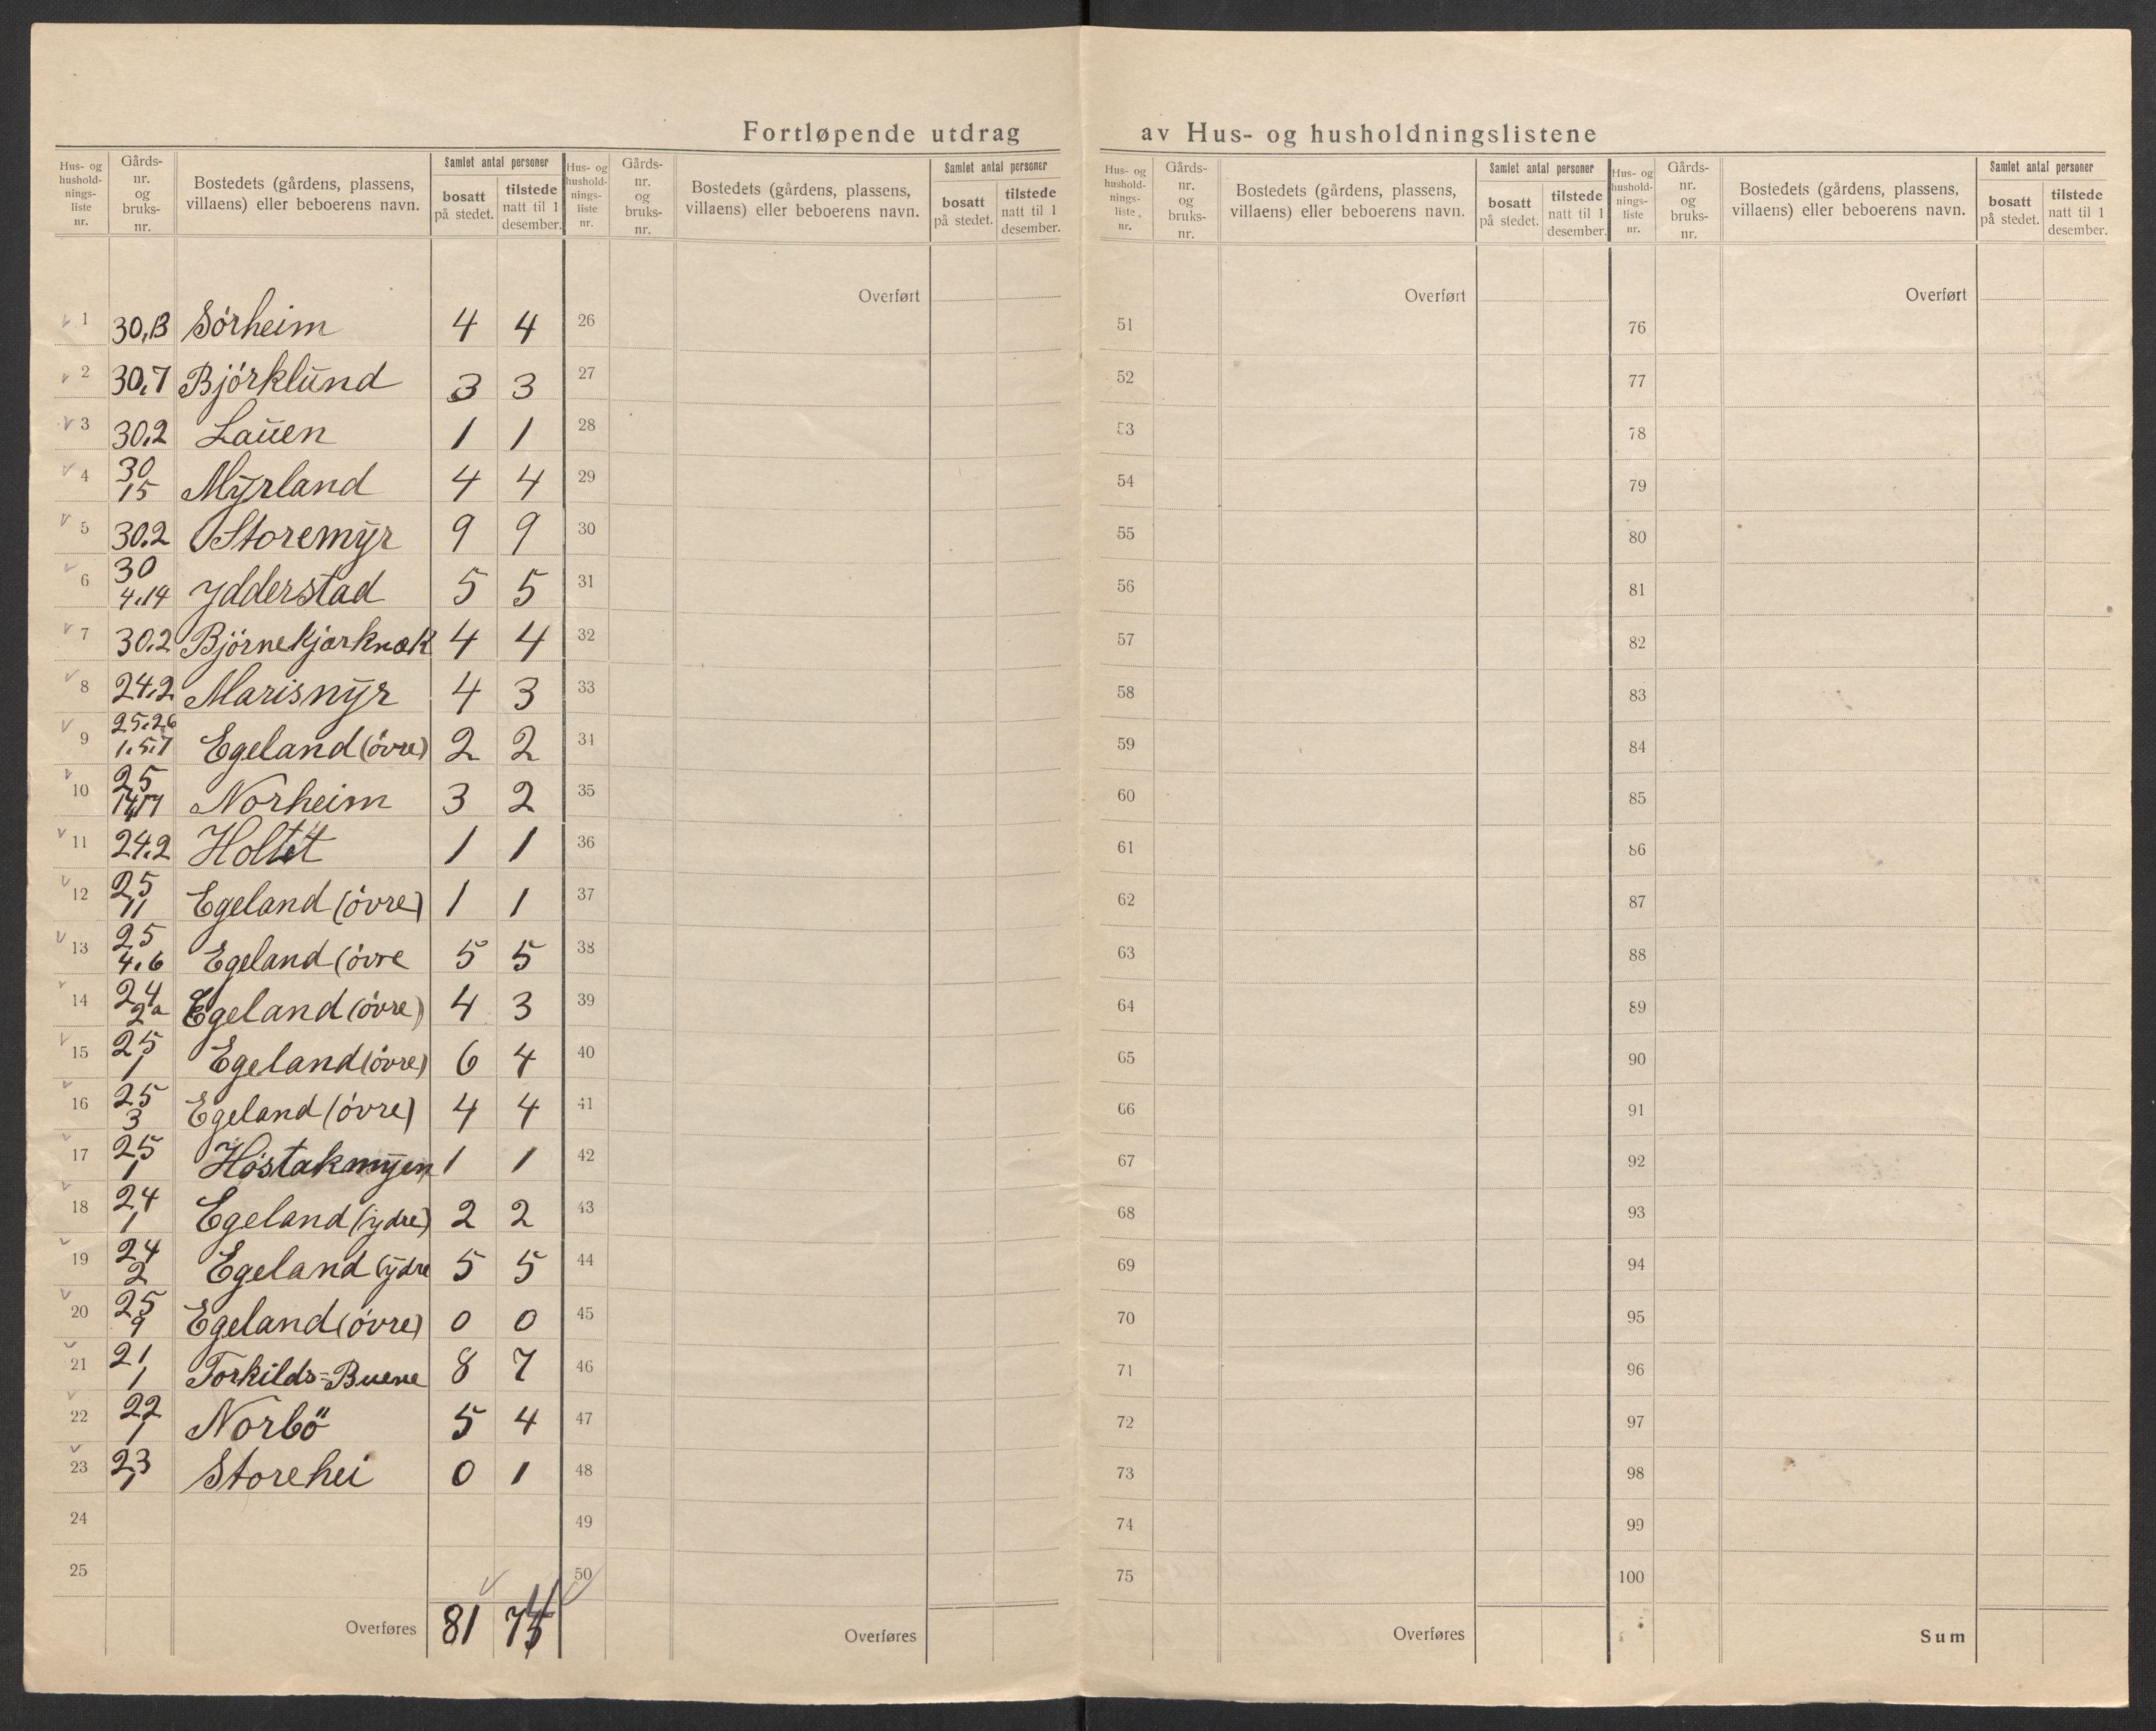 Fortløpende utdrag av Hus- og husholdningslistene
Hus- og hushold-nings-liste nr. Gårds-nr. og bruks-nr. Bostedets (gårdens, plassens, villaens) eller beboerens navn. Samlet antal personer bosatt på stedet. tilstede natt til 1 desember.
1 30,13 Sörheim 4 4
2 30,7 Björklund 3 3
3 30,2 Lauen 1 1
4 30 15 Myrland 4 4
5 30,2 Storemyr 9 9
6 30 4,14 Ydderstad 5 5
7 30,2 Björnekjærknæk 4 4
8 24,2 Marismyr 4 3
9 25,26 1,5,7 Egeland (övre) 2 2
10 25 Norheim 3 2
11 24,2 Holtet 1 1
12 25 11 Egeland (övre) 1 1
13 25 4,6 Egeland (övre 5 5
14 24 2a Egeland (övre) 4 3
15 25 1 Egeland (övre) 6 4
16 25 3 Egeland (övre) 4 4
17 25 1 Höstakmyen 1 1
18 24 1 Egeland (ydre) 2 2
19 24 2 Egeland (ydre 5 5
20 25 9 Egeland (övre) 0 0
21 21 1 Torkilds=Buene 8 7
22 22 1 Norbö 5 4
23 23 1 Storehei 0 1
24
25
Overføres 81
Hus- og hushold-nings-liste nr. Gårds-nr. og bruks-nr. Bostedets (gårdens, plassens, villaens) eller beboerens navn. Samlet antal personer bosatt på stedet. tilstede natt til 1 desember.
Overført
26
27
28
29
30
31
32
33
34
35
36
37
38
39
40
41
42
43
44
45
46
47
48
49
50
Overføres
Hus- og hushold-nings-liste nr. Gårds-nr. og bruks-nr. Bostedets (gårdens, plassens, villaens) eller beboerens navn. Samlet antal personer bosatt på stedet. tilstede natt til 1 desember.
Overført
51
52
53
54
55
56
57
58
59
60
61
62
63
64
65
66
67
68
69
70
71
72
73
74
75
Overføres
Hus- og hushold-nings-liste nr. Gårds-nr. og bruks-nr. Bostedets (gårdens, plassens, villaens) eller beboerens navn. Samlet antal personer bosatt på stedet. tilstede natt til 1 desember.
Overført
76
77
78
79
80
81
82
83
84
85
86
87
88
89
90
91
92
93
94
95
96
97
98
99
100
Sum